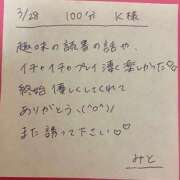 3/28 100分 K様
趣味の読書の話や、
イチャイチャプレイ凄く楽しかった♡
終始優しくしてくれて
ありがとう、(^o^)/
また誘って下さい♡♡
みと